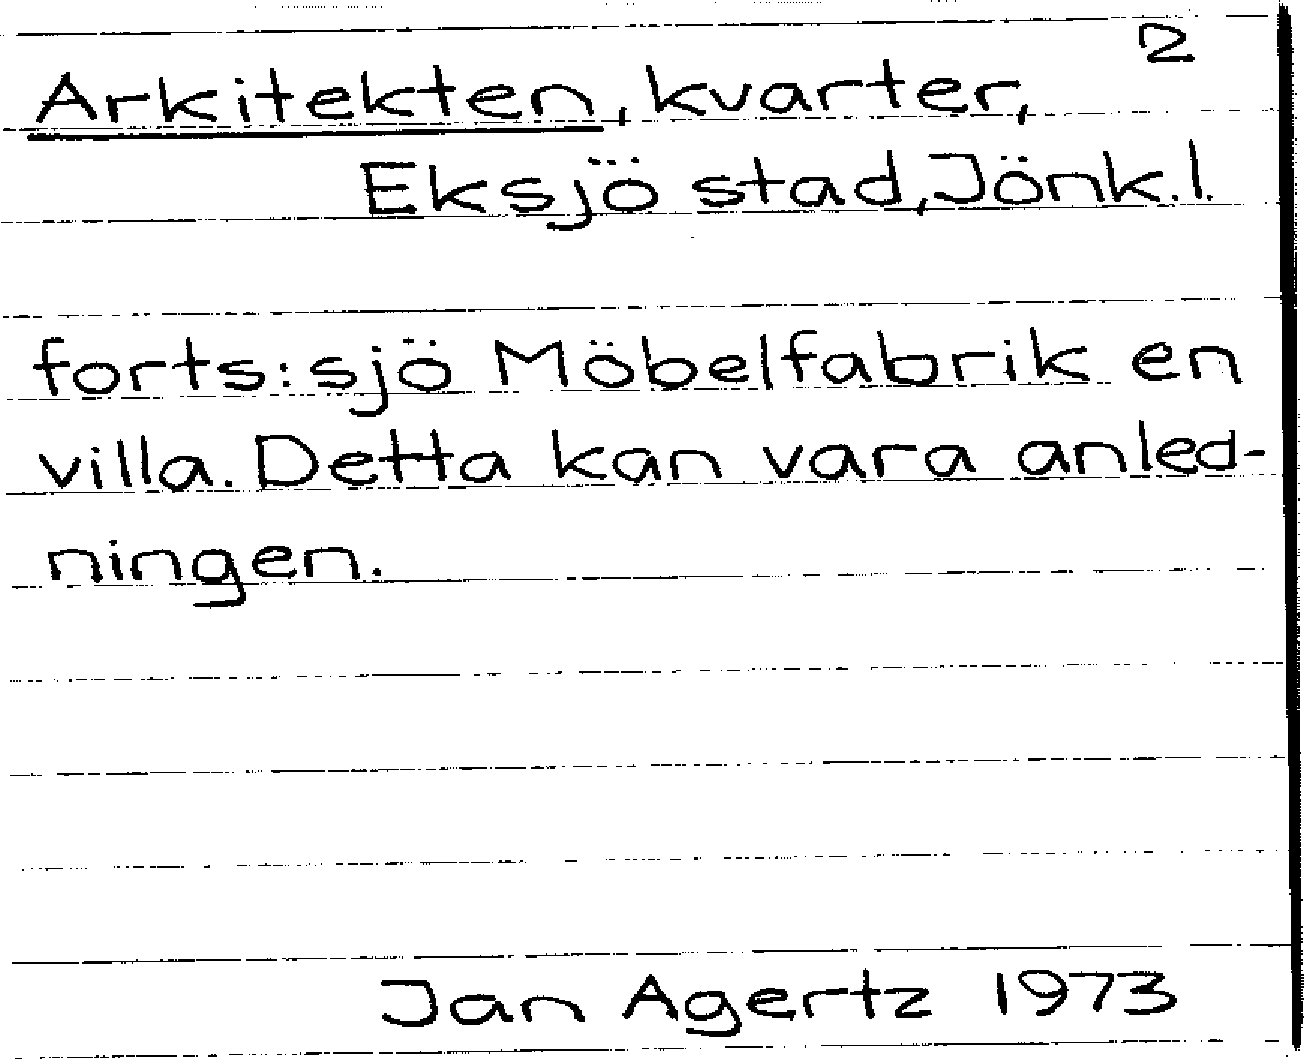 2
Arkitekten, kvarter,
Eksjö stad, Jönk.l.
forts: sjö Möbelfabrik en
villa. Detta kan vara anled-
ningen.
Jan Agertz 1973